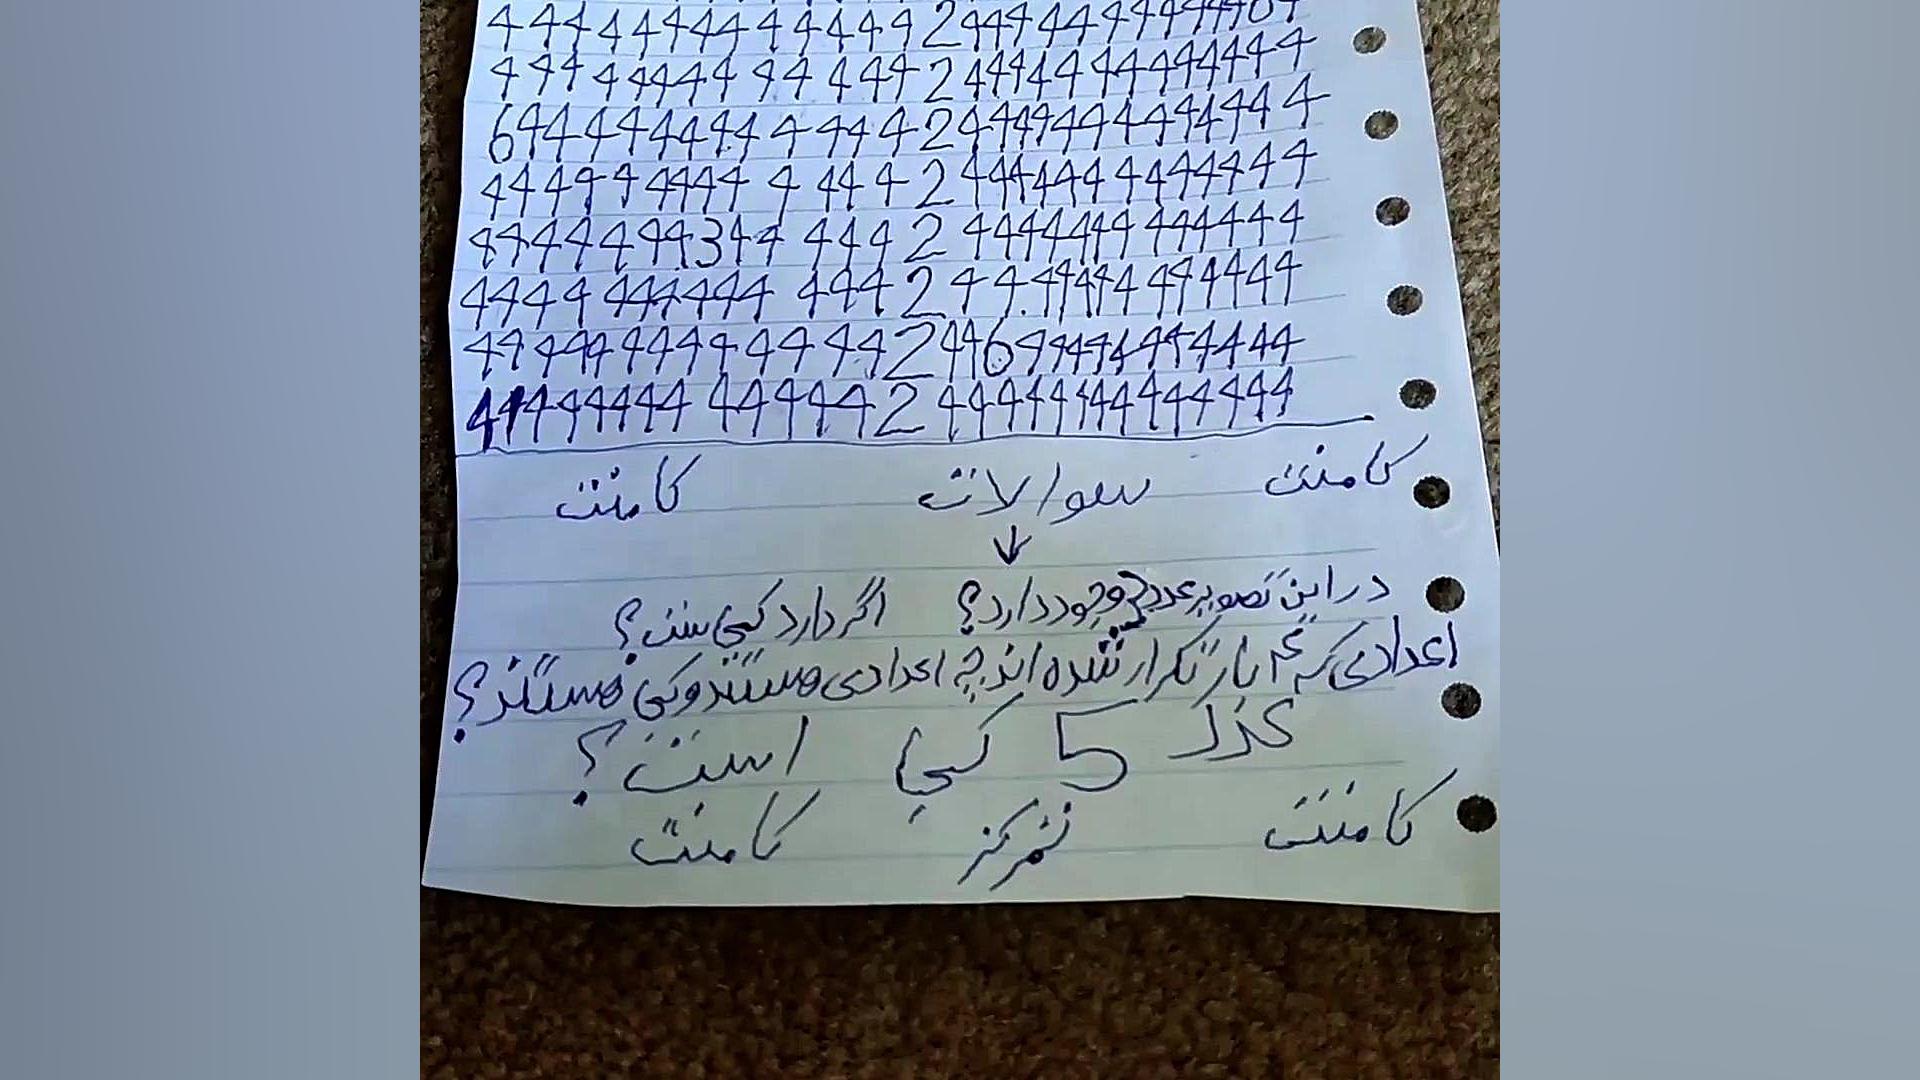 4 4 4 4 4 4 4 4 4 4 4 4 4 2 4 4 4 4 4 4 4 4 4 4 4 0 4
4 4 4 4 4 4 4 4 4 4 4 4 4 2 4 4 4 4 4 4 4 4 4 4 4 4 4
6 4 4 4 4 4 4 4 4 4 4 4 4 2 4 4 4 4 4 4 4 4 4 4 4 4 4
4 4 4 4 4 4 4 4 4 4 4 4 4 2 4 4 4 4 4 4 4 4 4 4 4 4 4
8 4 4 4 4 4 4 3 4 4 4 4 4 2 4 4 4 4 4 4 4 4 4 4 4 4 4
4 4 4 4 4 4 4 4 4 4 4 4 4 2 4 4 4 4 4 4 4 4 4 4 4 4
4 4 4 4 4 4 4 4 4 4 4 4 4 2 4 4 6 4 4 4 4 4 4 4 4 4 4 4
4 4 4 4 4 4 4 4 4 4 4 4 4 2 4 4 4 4 4 4 4 4 4 4 4 4 4
کامنت سوالات کامنت
↓
در این تصویر عدد 3 وجود دارد؟ اگر دارد کجاست؟
اعدادی که کم بار تکرار شده اند چه اعدادی هستند و کجا هستند؟
عدد 5 کجا است؟
کامنت تمرکز کامنت